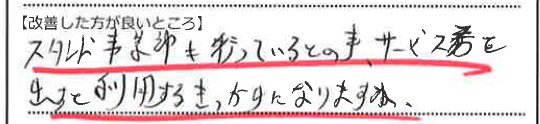 【改善した方が良いところ】
スタンド事業部も形っているとの事、サービス券を
出すと利用するきっかけになりますね、